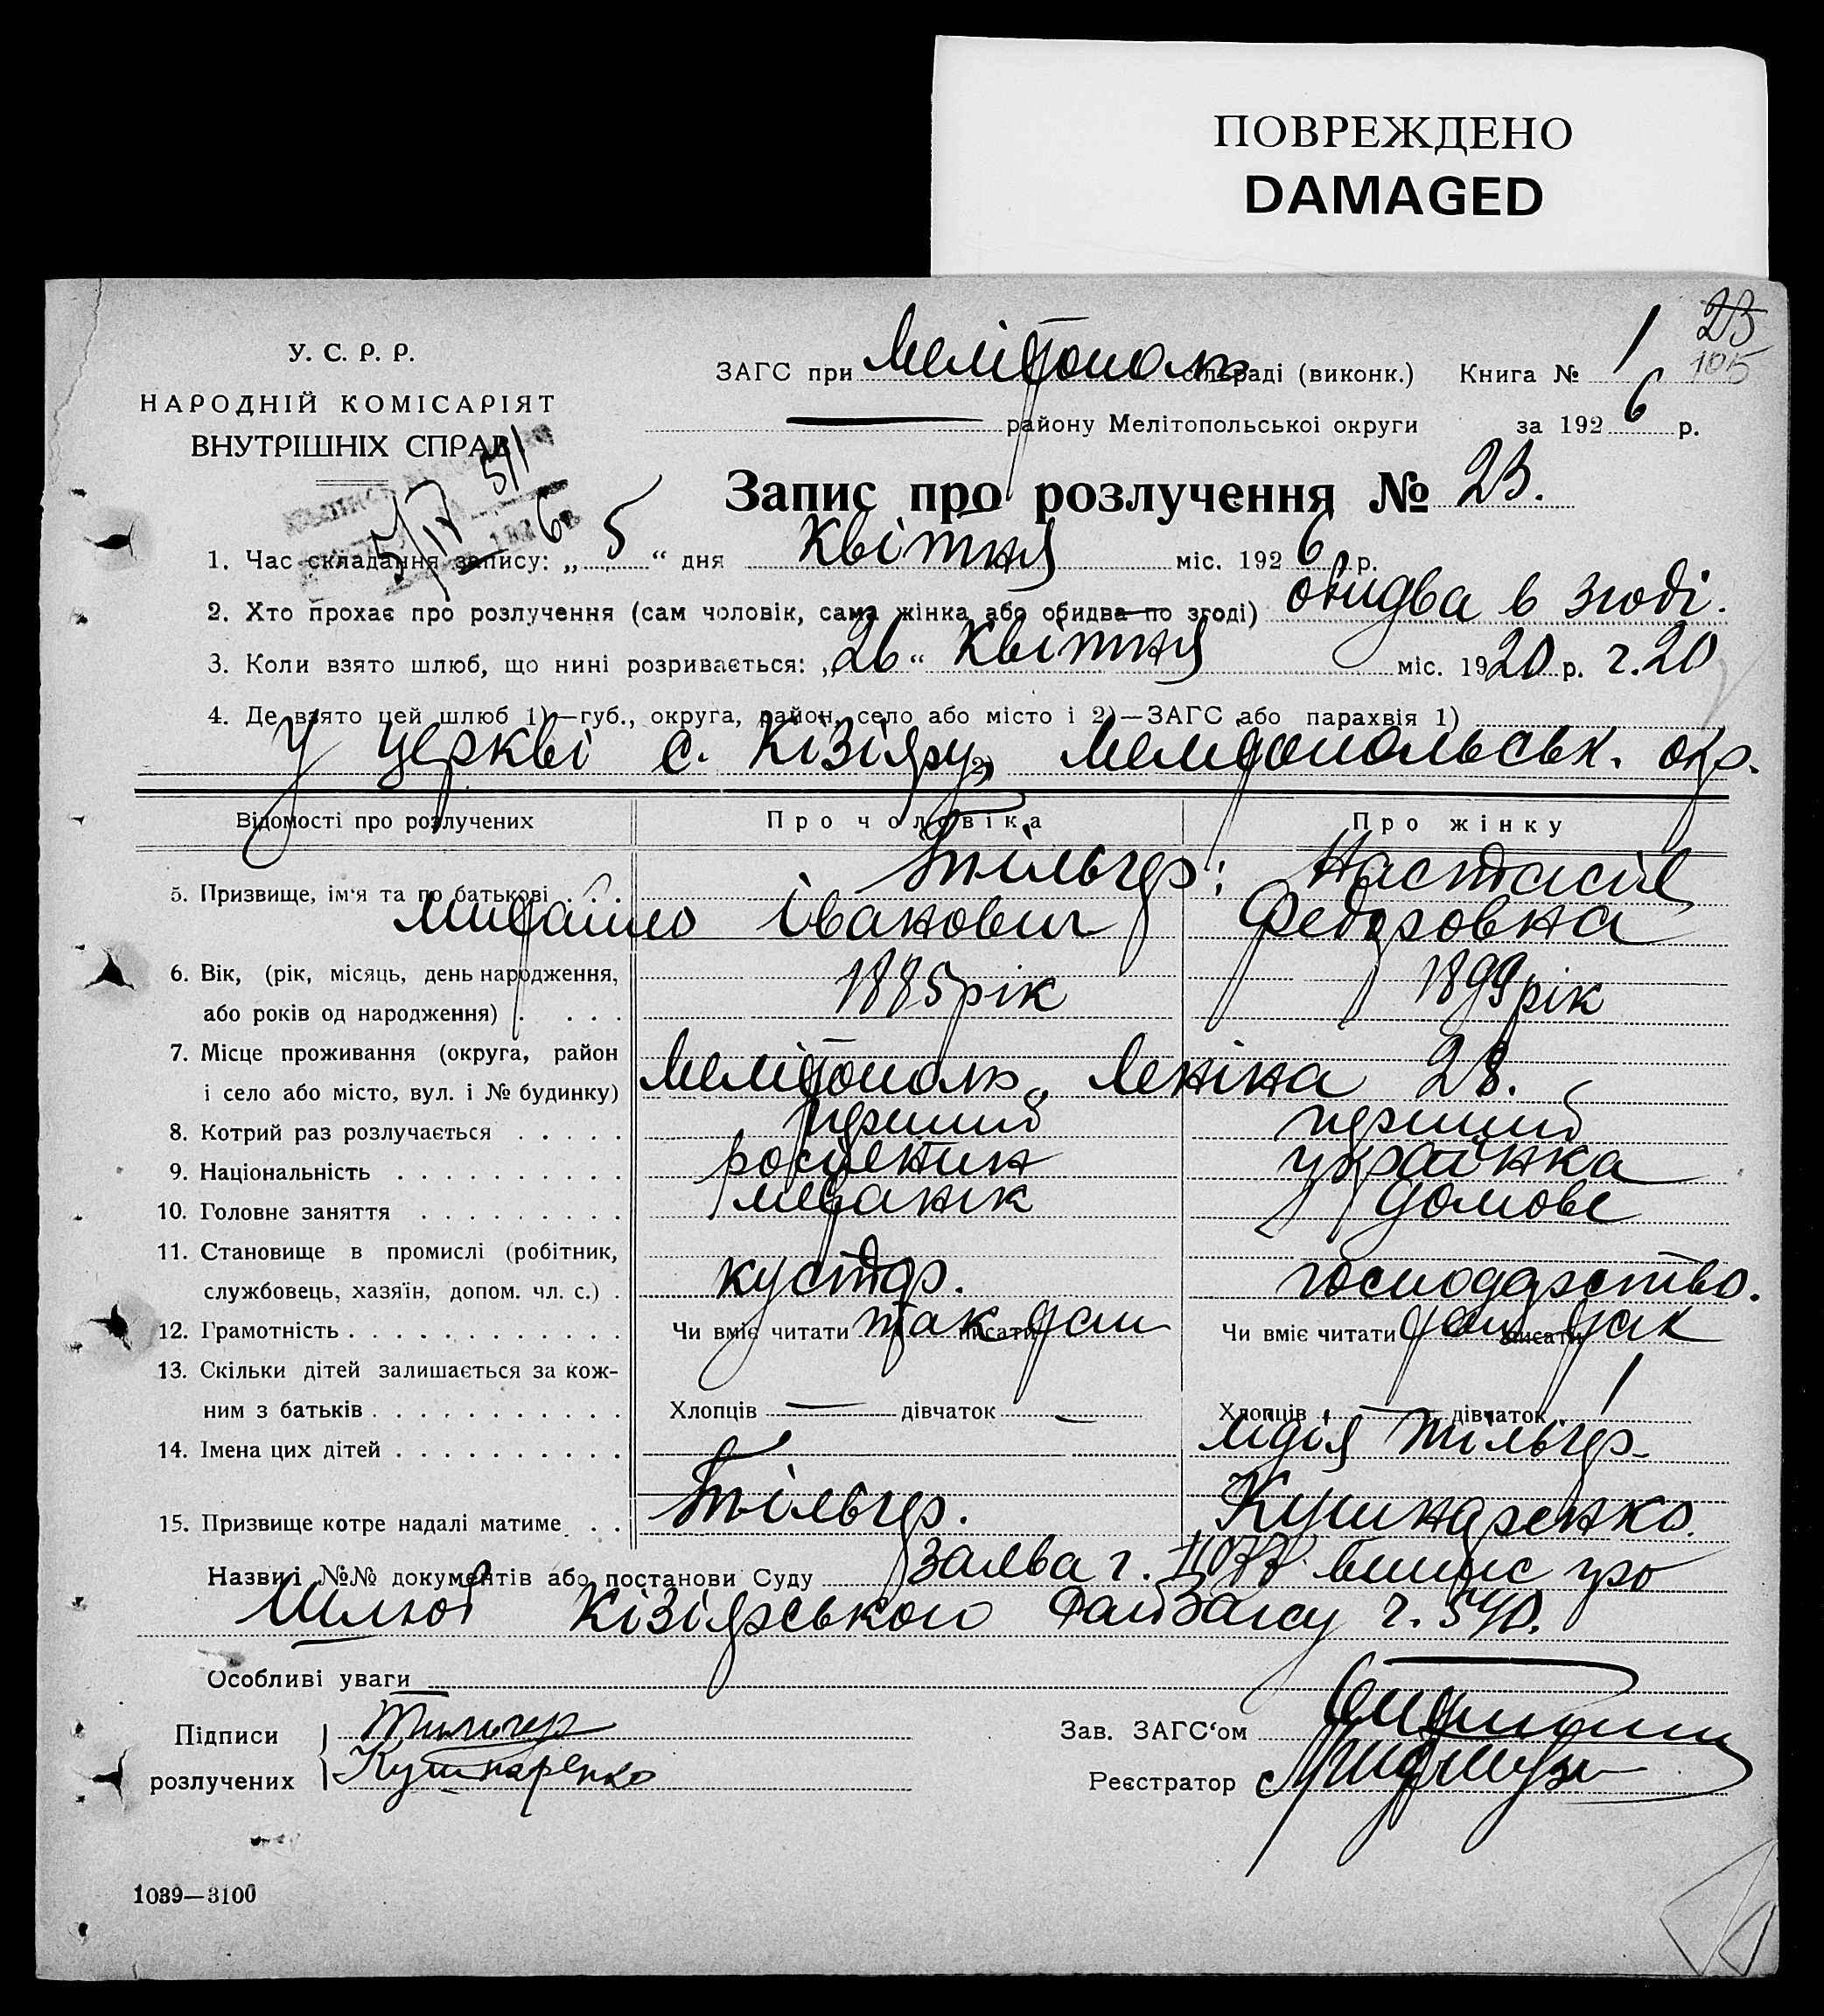 ПОВРЕЖДЕНО
DAMAGED
23
105
У. С. Р. Р.
НАРОДНІЙ КОМІСАРІЯТ
ВНУТРІШНІХ СПРАВ.
ЗАГС при Мелітополь сільраді (виконк.) Книга № 1
району Мелітопольської округи за 1926 р.
5/IV 6
Запис про розлучення № 23.
1. Час складання запису: „5“ дня Квітня міс. 1926 р.
2. Хто прохає про розлучення (сам чоловік, сама жінка або обидва по згоді) обидва в згоді.
3. Коли взято шлюб, що нині розривається: „26“ Квітня міс. 1920 р. г. 20
4. Де взято цей шлюб 1)—губ., округа, район, село або місто і 2)—ЗАГС або парахвія 1)
У церкві с. Кізіяру, 2) Мелитопольськ. окр.
Відомості про розлучених Про чоловіка Про жінку
5. Призвище, ім'я та по батькові Тільчер: Настасія
Михайло Іванович Федоровна
6. Вік, (рік, місяць, день народження, 1885 рік 1899 рік
або років од народження)
7. Місце проживання (округа, район
і село або місто, вул. і № будинку) Мелітополь, Леніна 28.
8. Котрий раз розлучається перший перший
9. Національність росіянин українка
10. Головне заняття механік домове
11. Становище в промислі (робітник,
службовець, хазяїн, допом. чл. с.) кустар. господарство.
12. Грамотність Чи вміє читати так писати Чи вміє читати писати так
13. Скільки дітей залишається за кож-
ним з батьків Хлопців — дівчаток — Хлопців — дівчаток 1
14. Імена цих дітей — Лідія Тільчер
15. Призвище котре надалі матиме Тільчер. Кушнаренко.
Назви і №№ документів або постанови Суду Заява г. випис про
Шлюб Кізіярського г. 540.
Особливі уваги
Підписи Тильчер Зав. ЗАГС'ом
розлучених Кушнаренко Реєстратор
1039—3100